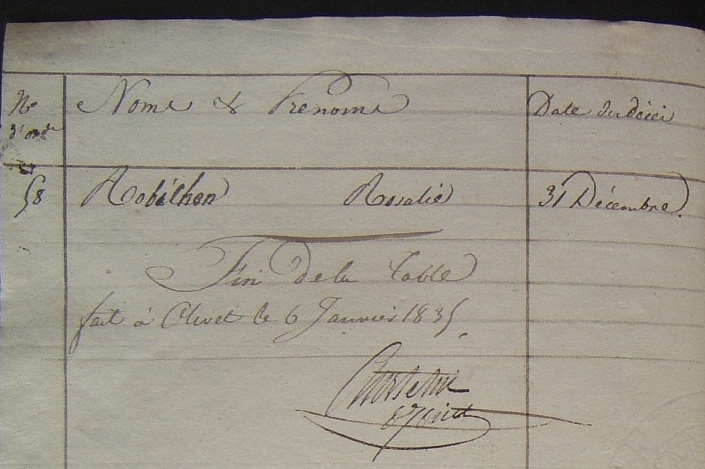 No Noms & Prénoms Date du décès
d'ordre
58 Robichon Rosalie 31 Décembre.
Fin de la Table
fait à Olivet le 6 Janvier 1835